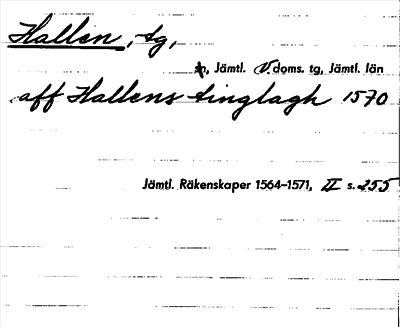 Hallen, tg,
n, Jämtl. V. doms. tg, Jämtl. län
aff Hallens tinglagh 1570
Jämtl. Räkenskaper 1564–1571, II s. 255